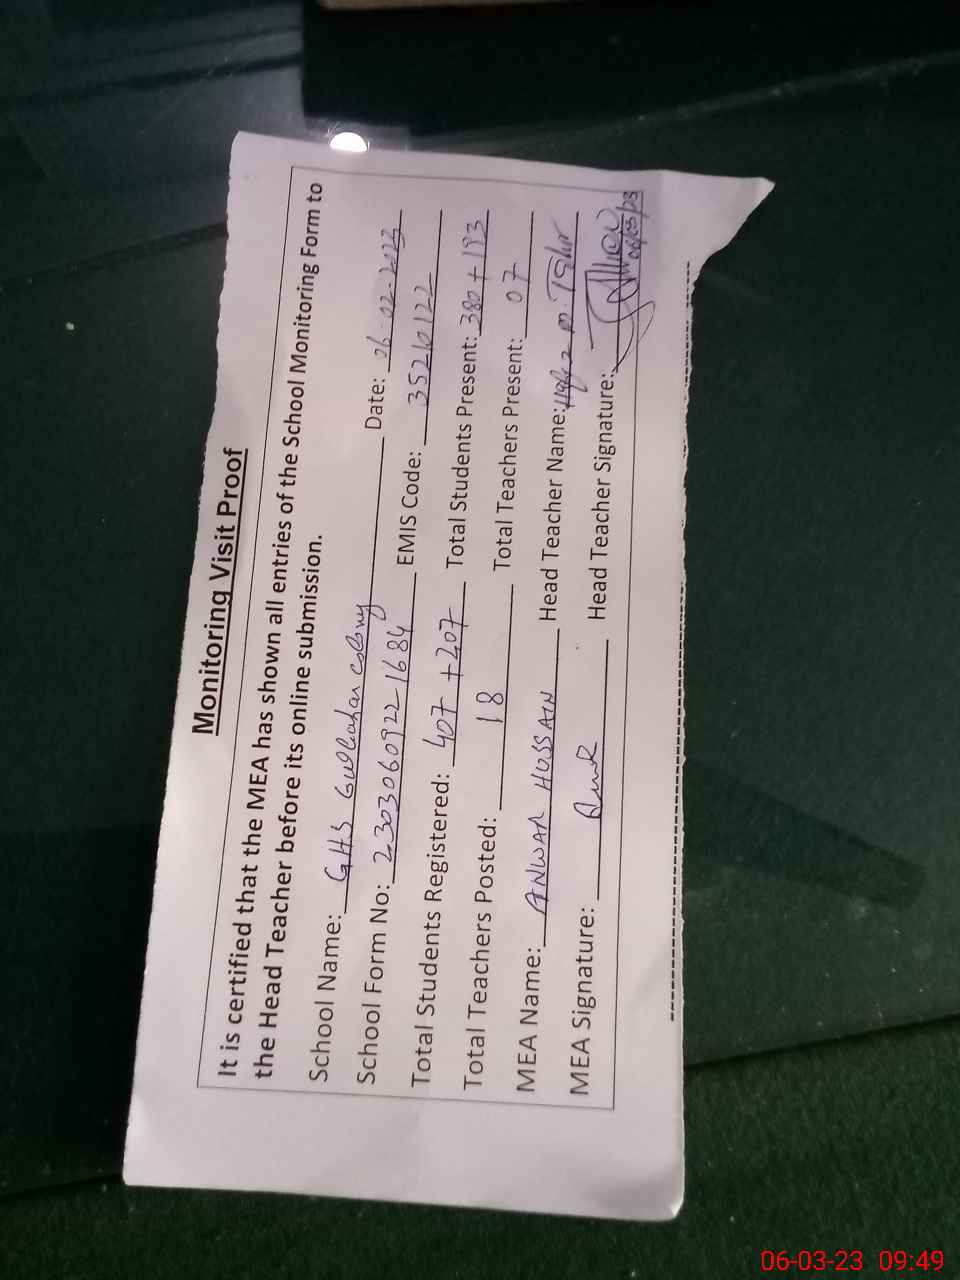 Monitoring Visit Proof
It is certified that the MEA has shown all entries of the School Monitoring Form to
the Head Teacher before its online submission.
School Name: G.H.S Gulbahar Colony Date: 06-02-2023
School Form No: 23030609221684 EMIS Code: 35210122
Total Students Registered: 407 + 207 Total Students Present: 380 + 193
Total Teachers Posted: 18 Total Teachers Present: 07
MEA Name: ANWAR HUSSAIN Head Teacher Name: M. Tahir
MEA Signature: Head Teacher Signature:
06/03/23
06-03-23 09:49